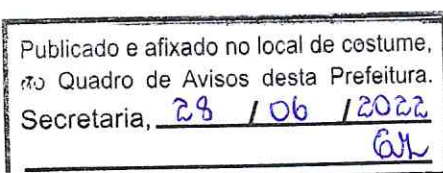 Publicado e afixado no local de costume,
no Quadro de Avisos desta Prefeitura.
Secretaria, 28 / 06 / 2022